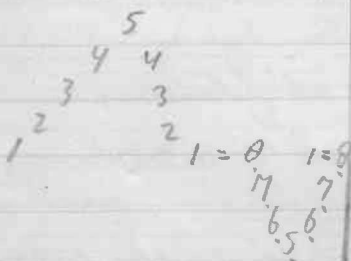 5
4 4
3 3
2 2
1 1 = 8 1 = 8
7 7
6 6
5